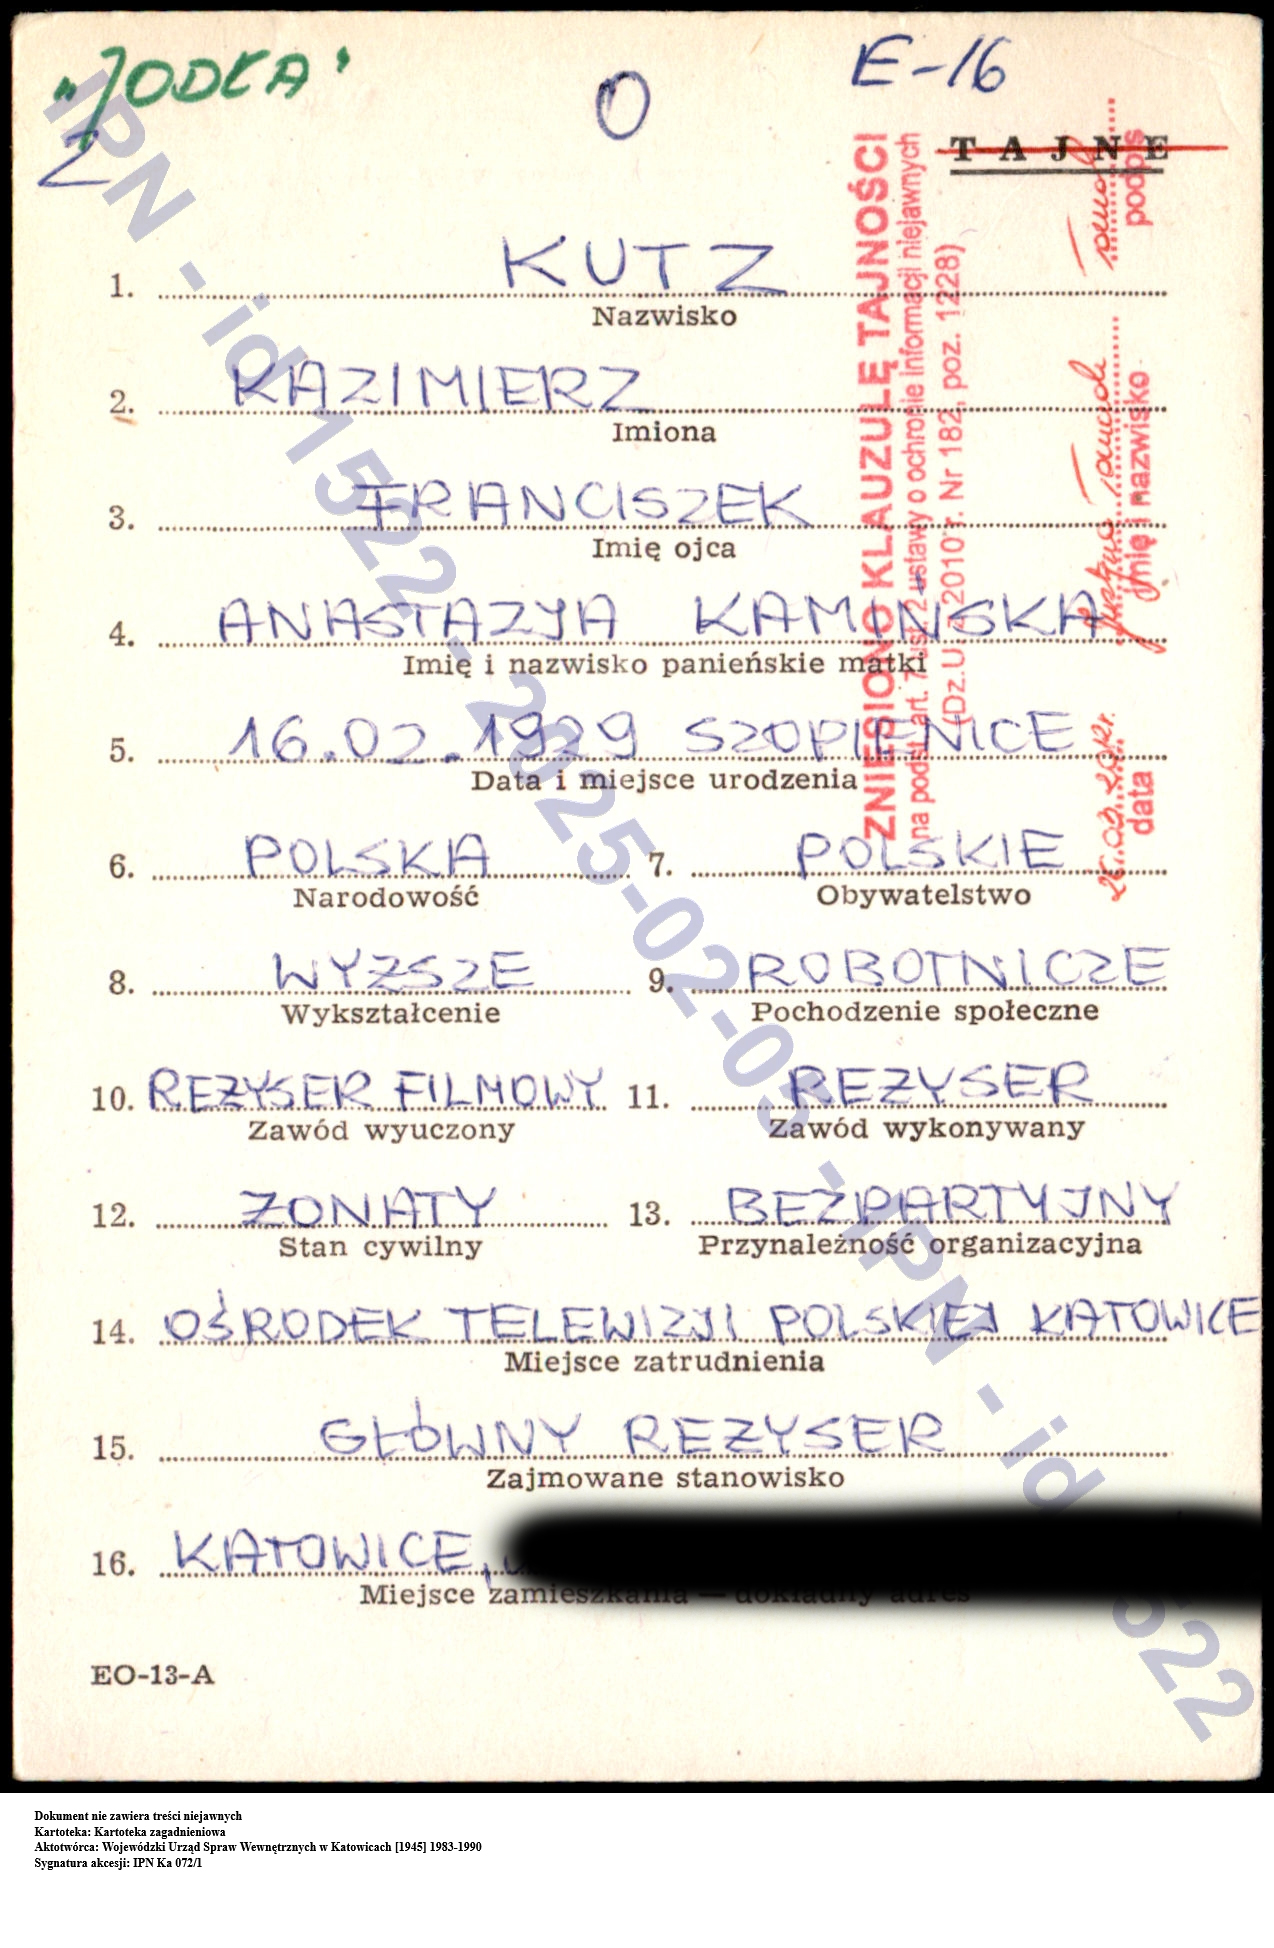 "JODŁA"
O
E-16
Z
TAJNE
1. KUTZ
Nazwisko
2. KAZIMIERZ
Imiona
3. FRANCISZEK
Imię ojca
4. ANASTAZJA KAMIŃSKA
Imię i nazwisko panieńskie matki
5. 16.02.1929 SZOPIENICE
Data i miejsce urodzenia
6. POLSKA 7. POLSKIE
Narodowość Obywatelstwo
8. WYŻSZE 9. ROBOTNICZE
Wykształcenie Pochodzenie społeczne
10. REŻYSER FILMOWY 11. REŻYSER
Zawód wyuczony Zawód wykonywany
12. ŻONATY 13. BEZPARTYJNY
Stan cywilny Przynależność organizacyjna
14. OŚRODEK TELEWIZJI POLSKIEJ KATOWICE
Miejsce zatrudnienia
15. GŁÓWNY REŻYSER
Zajmowane stanowisko
16. KATOWICE,
Miejsce zamieszkania — dokładny adres
EO-13-A
ZNIESIONO KLAUZULĘ TAJNOŚCI
na podst. art. 7 ust. 2 ustawy o ochronie informacji niejawnych
(Dz.U. z 2010 r. Nr 182, poz. 1228)
data imię i nazwisko podpis
IPN - id 1522 - 2025-02-05 - IPN - id 1522
Dokument nie zawiera treści niejawnych
Kartoteka: Kartoteka zagadnieniowa
Aktotwórca: Wojewódzki Urząd Spraw Wewnętrznych w Katowicach [1945] 1983-1990
Sygnatura akcesji: IPN Ka 072/1